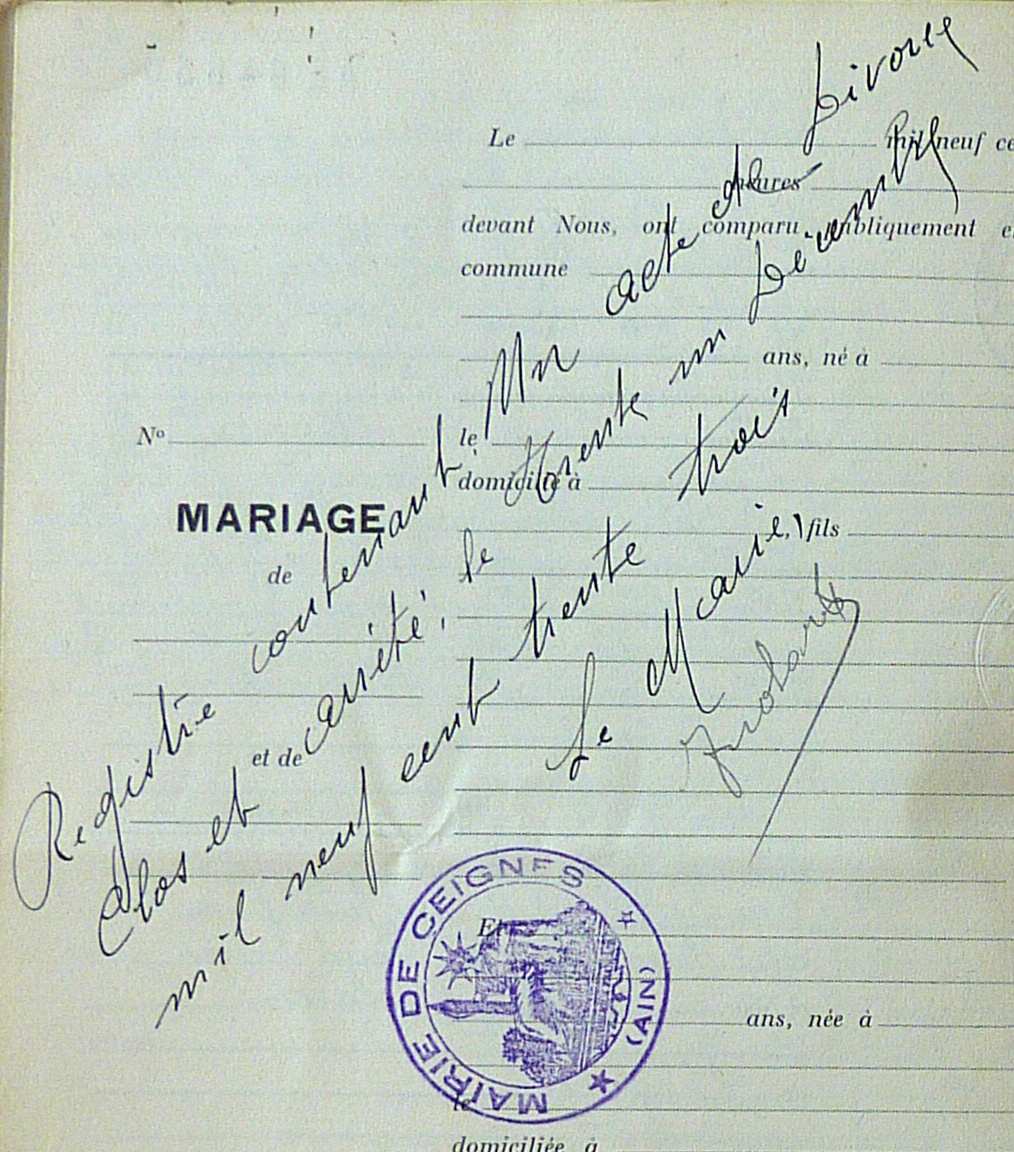 Le mil neuf ce
heures
devant Nous, ont comparu publiquement e
commune
ans, né à
No
le
domicilié à
MARIAGE
, fils
de
et de
Et
ans, née à
le
domiciliée à
Registre contenant Un acte de Divorce
Clos et arrêté, le trente un Décembre
mil neuf cent trente trois
Le Maire,
MAIRIE DE CEIGNES
(AIN)